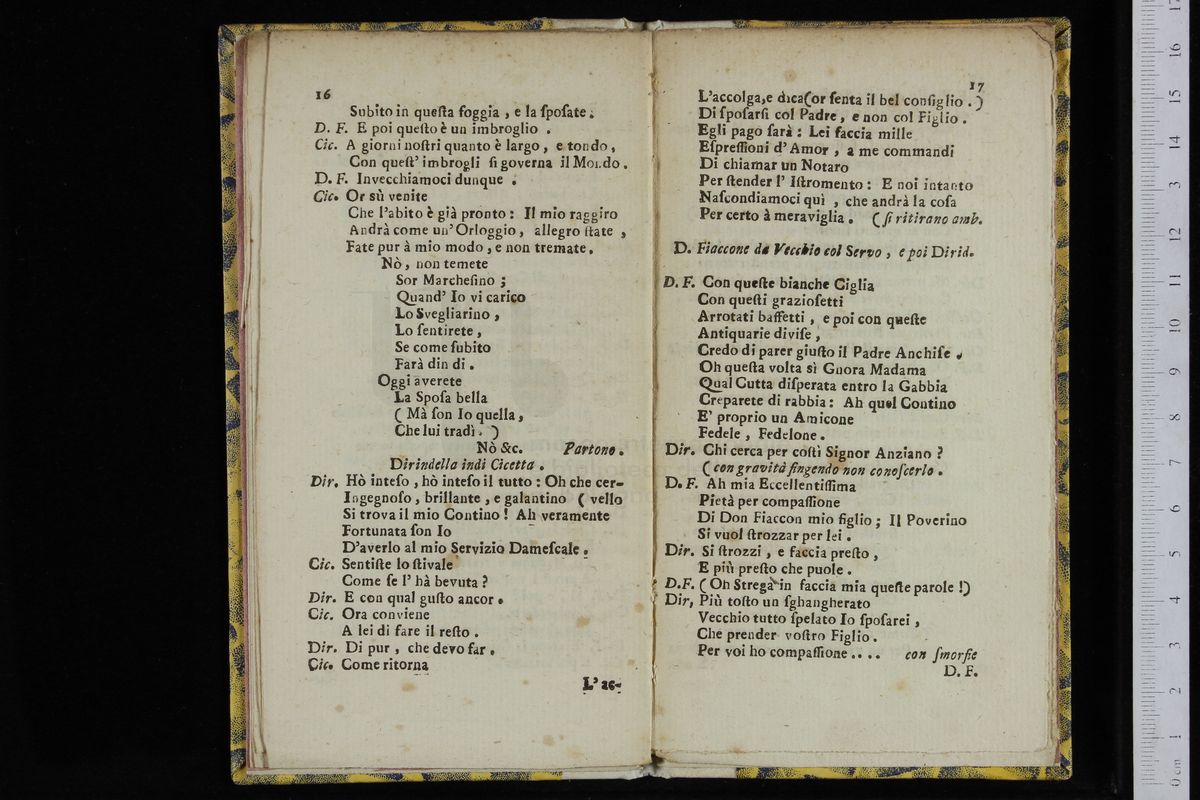 16
Subito in queſta foggia , e la ſpoſate .
D. F. E poi queſto è un imbroglio .
Cic. A giorni noſtri quanto è largo , e tondo ,
Con queſt' imbrogli ſi governa il Mondo .
D. F. Invecchiamoci dunque .
Cic. Or sù venite
Che l'abito è già pronto : Il mio raggiro
Andrà come un' Orloggio , allegro ſtate ,
Fate pur à mio modo , e non tremate .
Nò , non temete
Sor Marcheſino ;
Quand' Io vi carico
Lo Svegliarino ,
Lo ſentirete ,
Se come ſubito
Farà din di .
Oggi averete
La Spoſa bella
( Mà ſon Io quella ,
Che lui tradì . )
Nò &c. Partono .
Dirindella indi Cicetta .
Dir. Hò inteſo , hò inteſo il tutto : Oh che cer-
Ingegnoſo , brillante , e galantino ( vello
Si trova il mio Contino ! Ah veramente
Fortunata ſon Io
D'averlo al mio Servizio Dameſcale .
Cic. Sentiſte lo ſtivale
Come ſe l' hà bevuta ?
Dir. E con qual guſto ancor .
Cic. Ora conviene
A lei di fare il reſto .
Dir. Di pur , che devo far .
Cic. Come ritorna
L' ac-
17
L'accolga,e dica(or ſenta il bel conſiglio . )
Di ſpoſarſi col Padre , e non col Figlio .
Egli pago ſarà : Lei faccia mille
Eſpreſſioni d' Amor , a me commandi
Di chiamar un Notaro
Per ſtender l' Iſtromento : E noi intanto
Naſcondiamoci quì , che andrà la coſa
Per certo à meraviglia . ( ſi ritirano amb.
D. Fiaccone da Vecchio col Servo , e poi Dirid.
D. F. Con queſte bianche Ciglia
Con queſti grazioſetti
Arrotati baffetti , e poi con queſte
Antiquarie diviſe ,
Credo di parer giuſto il Padre Anchiſe .
Oh queſta volta sì Gnora Madama
Qual Cutta diſperata entro la Gabbia
Creparete di rabbia : Ah quel Contino
E' proprio un Amicone
Fedele , Fedelone .
Dir. Chi cerca per coſtì Signor Anziano ?
( con gravità fingendo non conoſcerlo .
D. F. Ah mia Eccellentiſſima
Pietà per compaſſione
Di Don Fiaccon mio figlio ; Il Poverino
Si vuol ſtrozzar per lei .
Dir. Si ſtrozzi , e faccia preſto ,
E più preſto che puole .
D.F. ( Oh Strega in faccia mia queſte parole !)
Dir, Più toſto un ſghangherato
Vecchio tutto ſpelato Io ſpoſarei ,
Che prender voſtro Figlio .
Per voi ho compaſſione . . . . con ſmorfie
D. F.